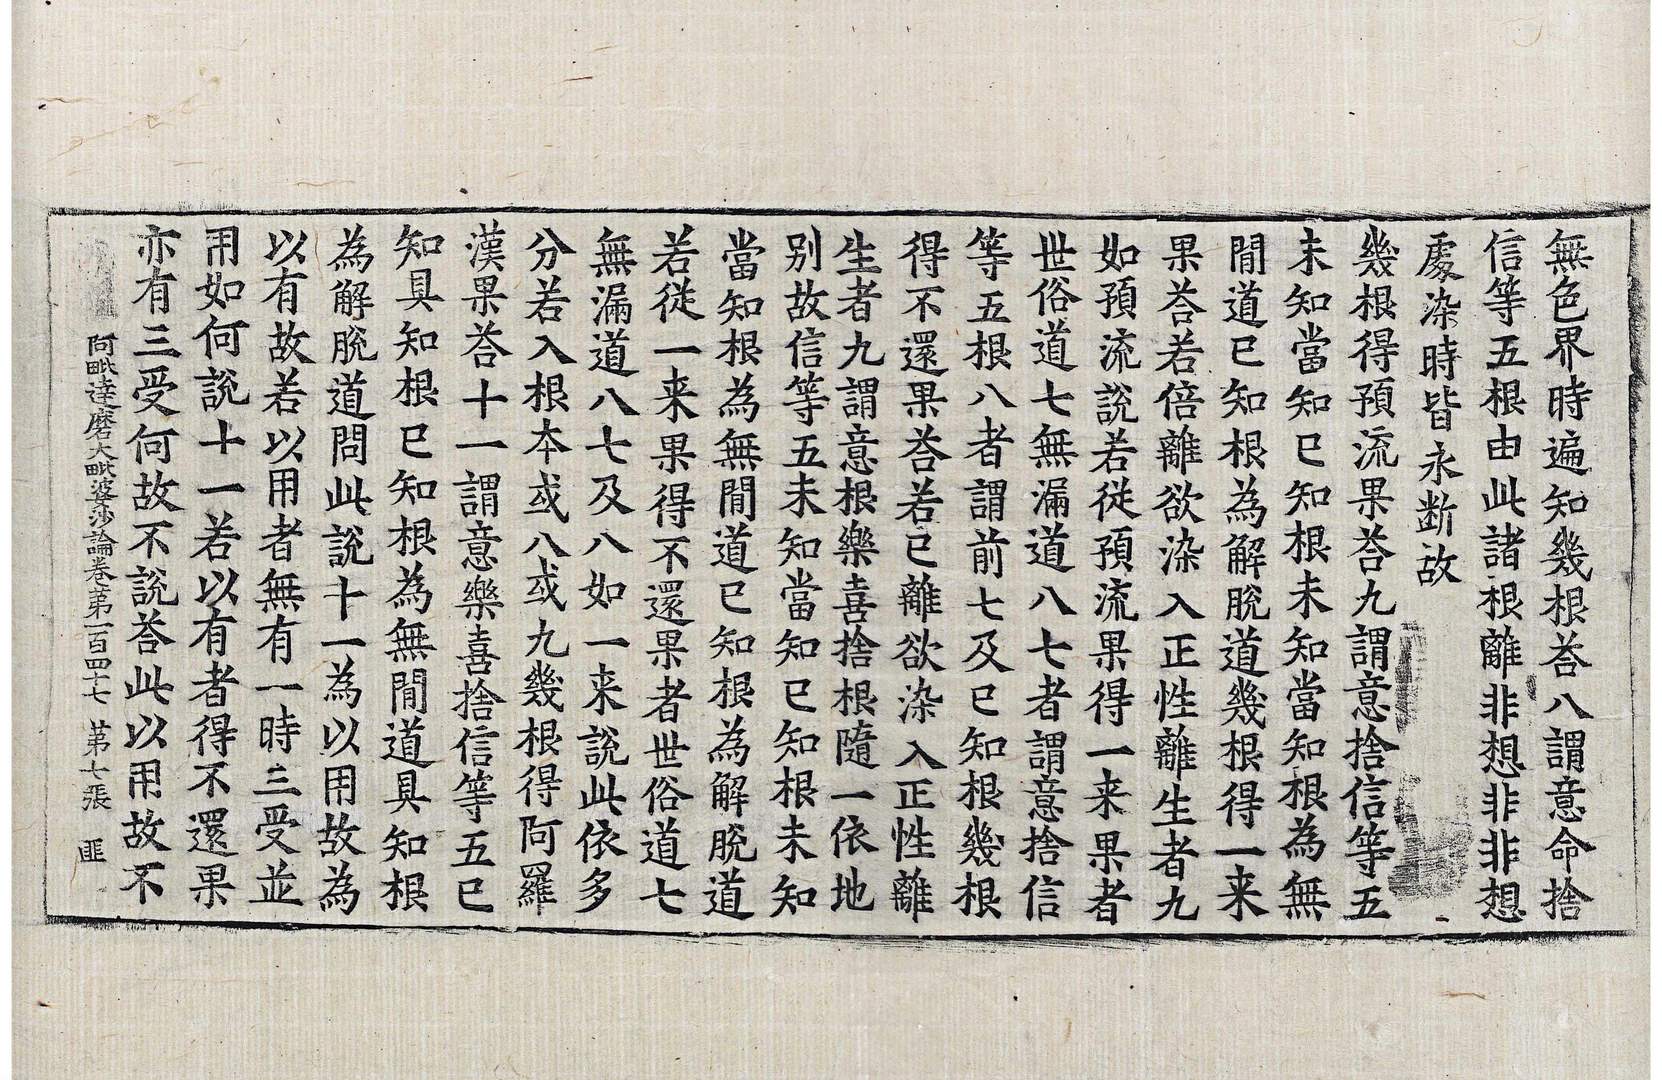 無色界時遍知幾根荅八謂意命捨
信等五根由此諸根離非想非非想
處染時皆永断故
幾根得預流果荅九謂意捨信等五
未知當知已知根未知當知根為無
間道已知根為解脫道幾根得一来
果荅若倍離欲染入正性離生者九
如預流說若従預流果得一来果者
世俗道七無漏道八七者謂意捨信
等五根八者謂前七及已知根幾根
得不還果荅若已離欲染入正性離
生者九謂意根樂喜捨根隨一依地
别故信等五未知當知已知根未知
當知根為無間道已知根為解脫道
若従一来果得不還果者世俗道七
無漏道八七及八如一来說此依多
分若入根本或八或九幾根得阿羅
漢果荅十一謂意樂喜捨信等五已
知具知根已知根為無間道具知根
為解脫道問此說十一為以用故為
以有故若以用者無有一時三受並
用如何說十一若以有者得不還果
亦有三受何故不說荅此以用故不
阿毗達磨大毗婆沙論卷第一百四十七 第七張 匪